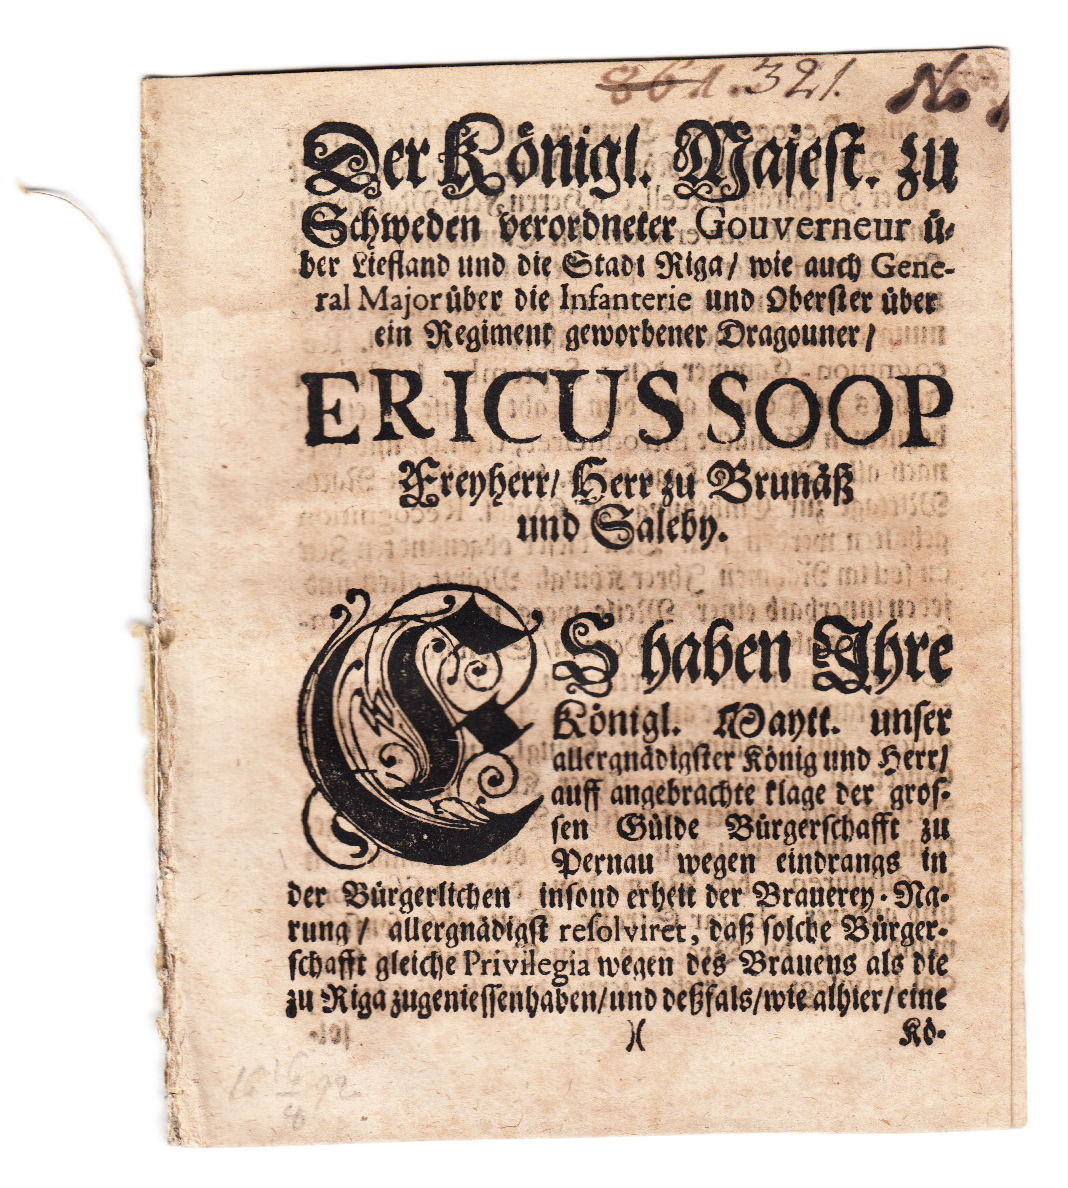 861. 321. No
Der Königl. Majest. zu
Schweden verordneter Gouverneur ü-
ber Liefland und die Stadt Riga/ wie auch Gene-
ral Major über die Infanterie und Oberster über
ein Regiment geworbener Dragouner/
ERICUS SOOP
Freyherr/ Herr zu Brunäß
und Saleby.
ES haben Ihre
Königl. Maytt. unser
allergnädigster König und Herr/
auff angebrachte klage der gros-
sen Gülde Bürgerschafft zu
Pernau wegen eindrangs in
der Bürgerlichen insond erheit der Brauerey-Na-
rung/ allergnädigst resolviret, daß solche Bürger-
schafft gleiche Privilegia wegen des Brauens als die
zu Riga zugeniessen haben/ und deßfals/ wie alhier/ eine
)( Kö-